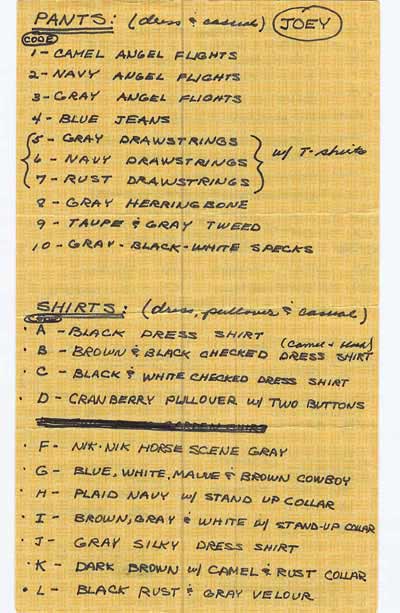 PANTS: (dress & casual) JOEY
CODE
1 - CAMEL ANGEL FLIGHTS
2 - NAVY ANGEL FLIGHTS
3 - GRAY ANGEL FLIGHTS
4 - BLUE JEANS
5 - GRAY DRAWSTRINGS
6 - NAVY DRAWSTRINGS w/ T-shirts
7 - RUST DRAWSTRINGS
8 - GRAY HERRINGBONE
9 - TAUPE & GRAY TWEED
10 - GRAY - BLACK - WHITE SPECKS
SHIRTS: (dress, pullover & casual)
CODE
A - BLACK DRESS SHIRT
B - BROWN & BLACK CHECKED DRESS SHIRT
C - BLACK & WHITE CHECKED DRESS SHIRT
D - CRANBERRY PULLOVER w/ TWO BUTTONS
F - NIK-NIK HORSE SCENE GRAY
G - BLUE, WHITE, MAUVE & BROWN COWBOY
H - PLAID NAVY w/ STAND UP COLLAR
I - BROWN, GRAY & WHITE w/ STAND-UP COLLAR
J - GRAY SILKY DRESS SHIRT
K - DARK BROWN w/ CAMEL & RUST COLLAR
L - BLACK RUST & GRAY VELOUR